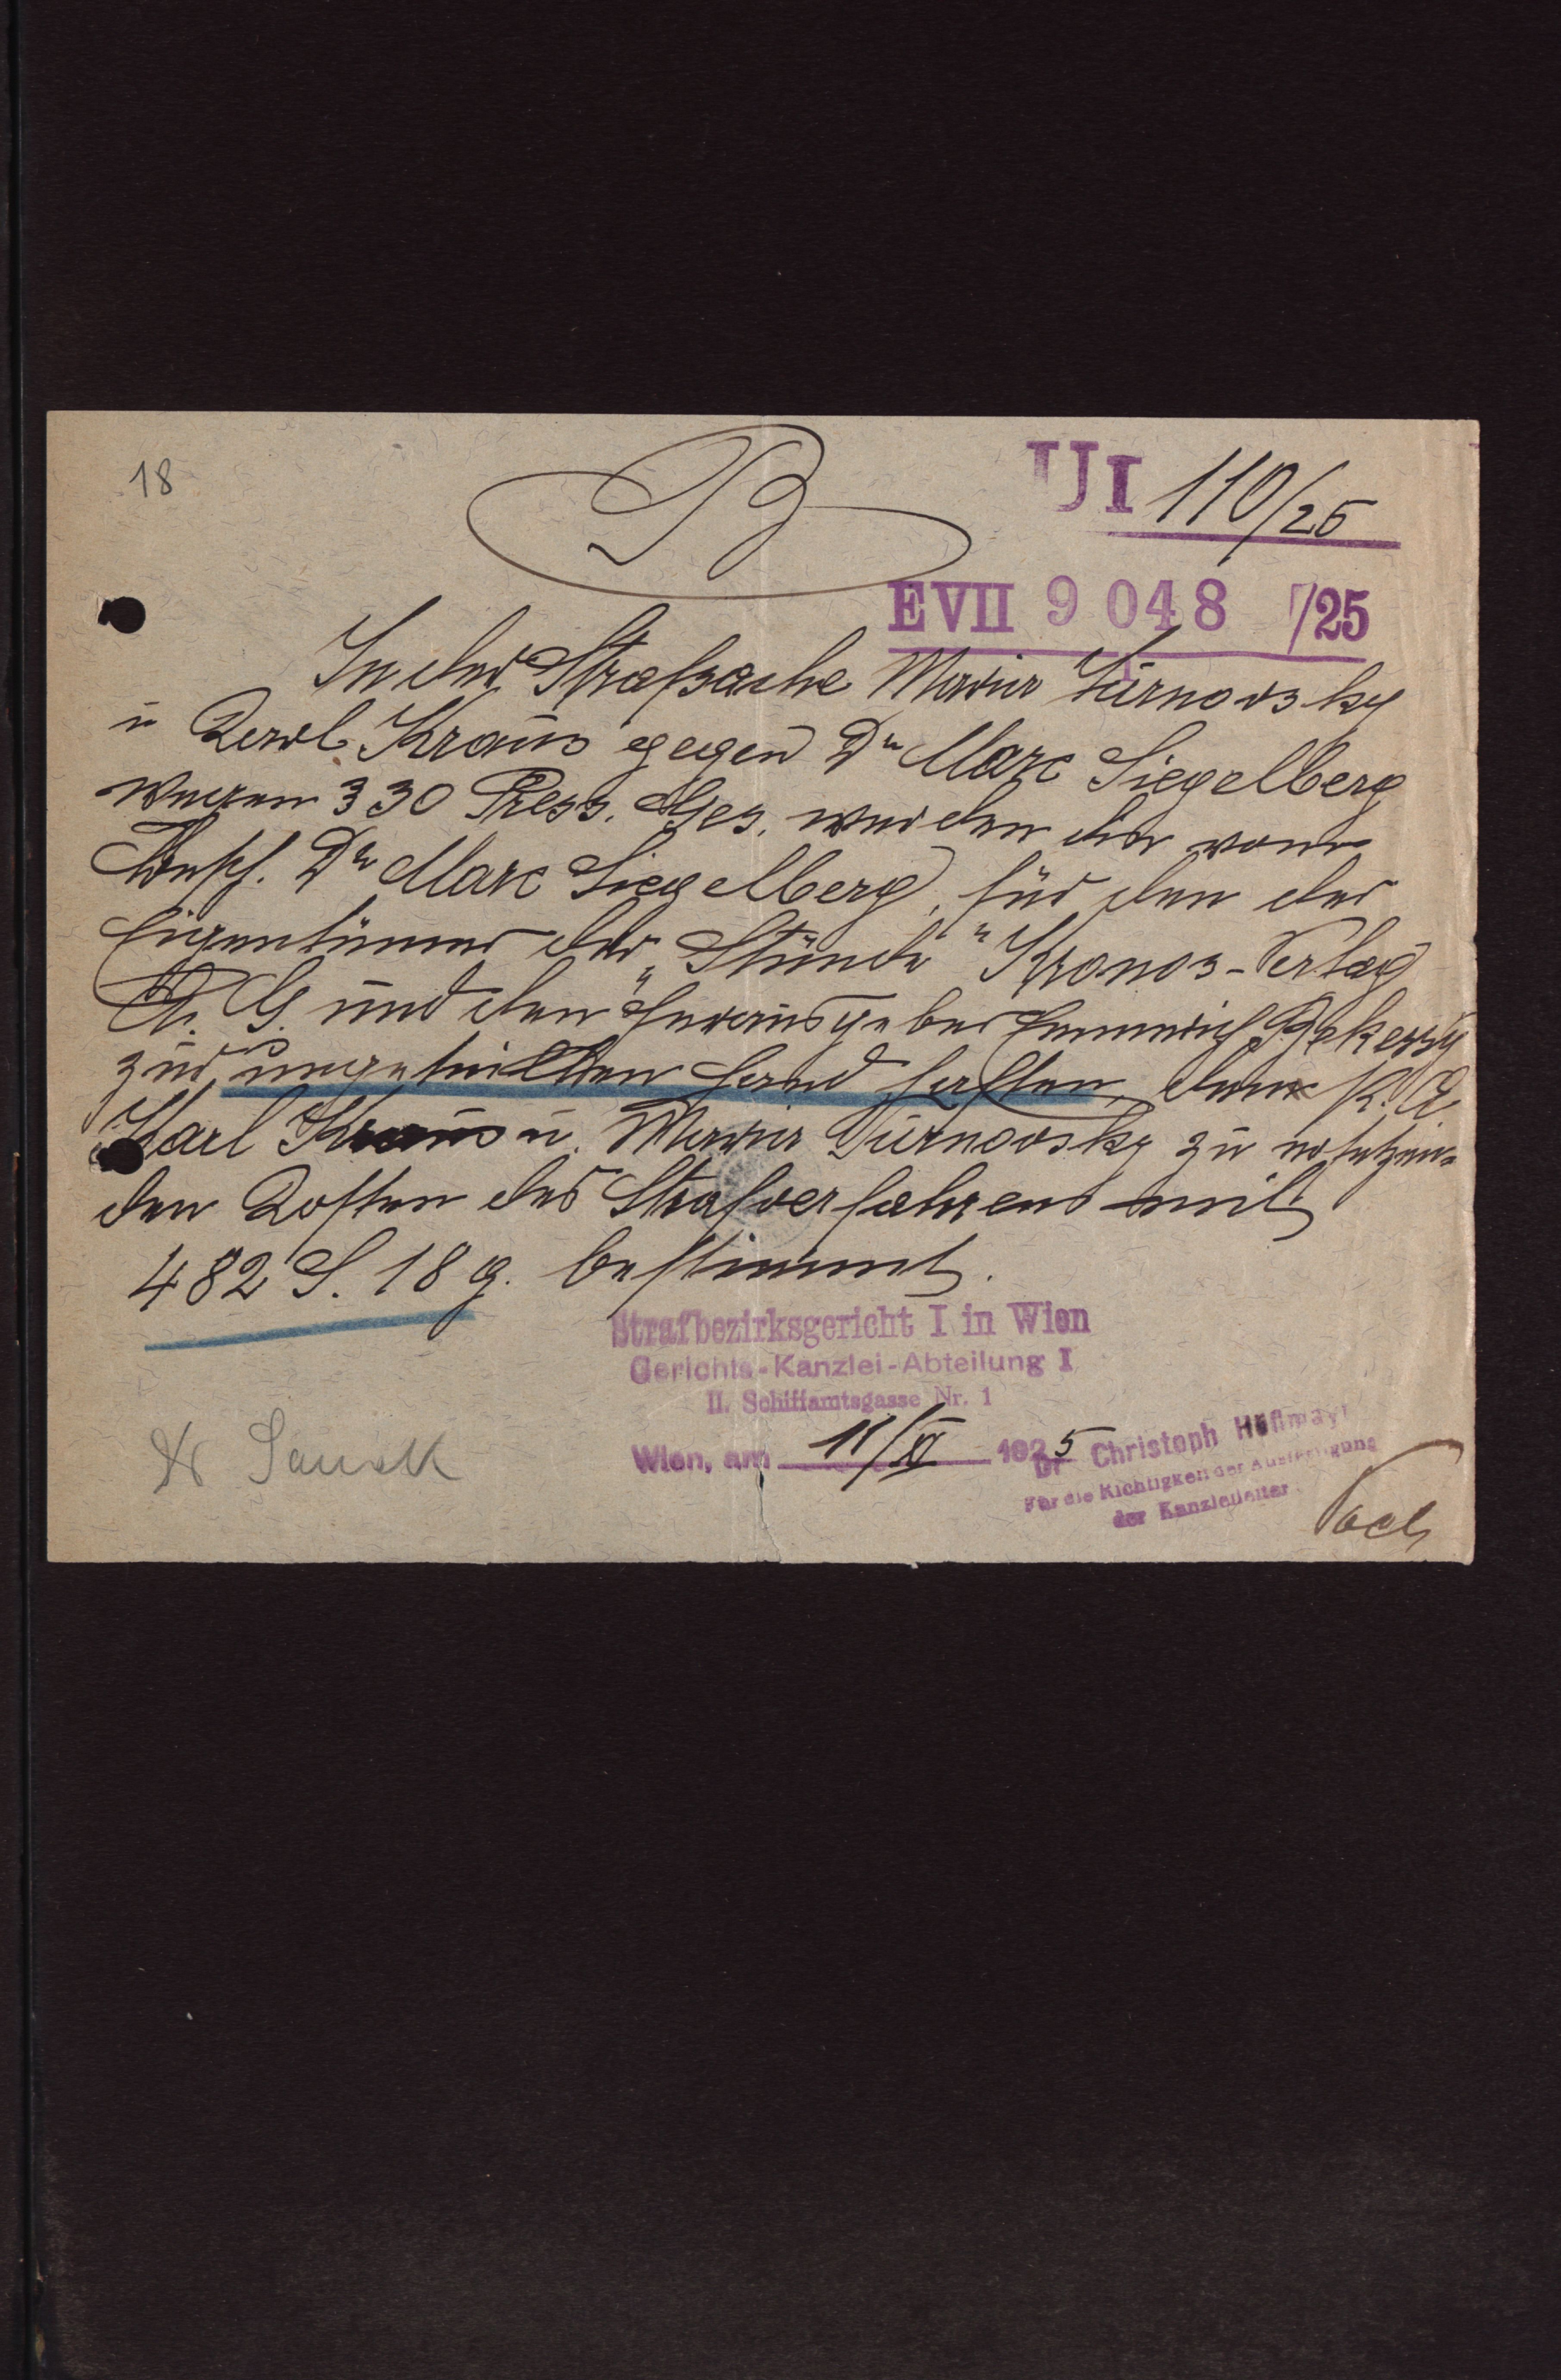 18
B
U I 110/25
E VII 9 048 /25
In der Strafsache Maria Turnovsky
u Karl Kraus gegen Dr Marc Siegelberg
wegen § 30 Press. Ges. werden die vom
Besch. Dr Marc Siegelberg, für den der
Eigentümer der „Stunde" Kronos-Verlag
A. G. und den Herausgeber Emmerich Bekessy
zur ungeteilten Hand haften, dem P. A.
Karl Kraus u. Maria Turnovsky zu ersetzen-
den Kosten des Strafverfahrens mit
482 S. 18 g. bestimmt.
Strafbezirksgericht I in Wien
Gerichts-Kanzlei-Abteilung I
II. Schiffamtsgasse Nr. 1
Wien, am 11/XI 1925
Dr Christoph Höflmayr
Für die Richtigkeit der Ausfertigung
der Kanzleileiter
Dr Samek